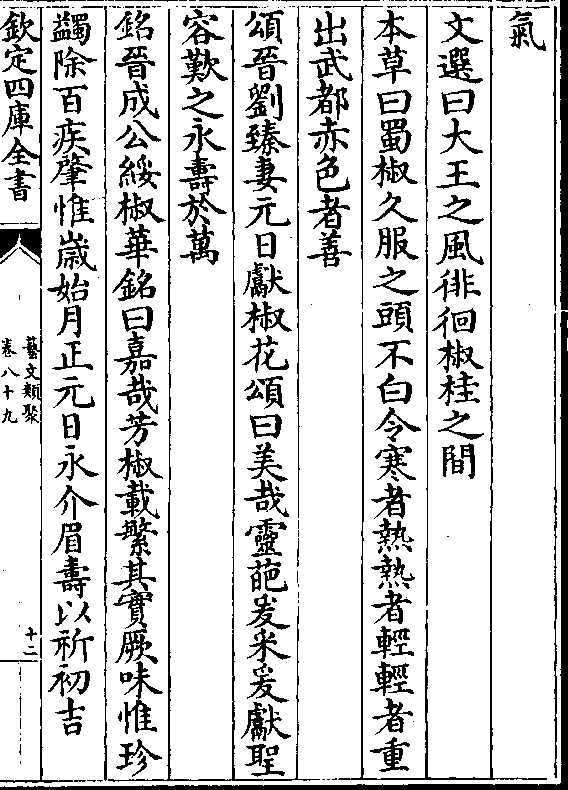 氣
文選曰大王之風徘徊椒桂之間
本草曰蜀椒久服之頭不白令寒者熱熱者輕輕者重
出武都赤色者善
頌晉劉臻妻元日獻椒花頌曰美哉靈葩爰采爰獻聖
容歎之永壽於萬
銘晉成公綏椒華銘曰嘉哉芳椒載繁其實厥味惟珍
蠲除百疾肇惟嵗始月正元日永介眉壽以祈初吉
欽定四庫全書
藝文類聚
卷八十九
十二